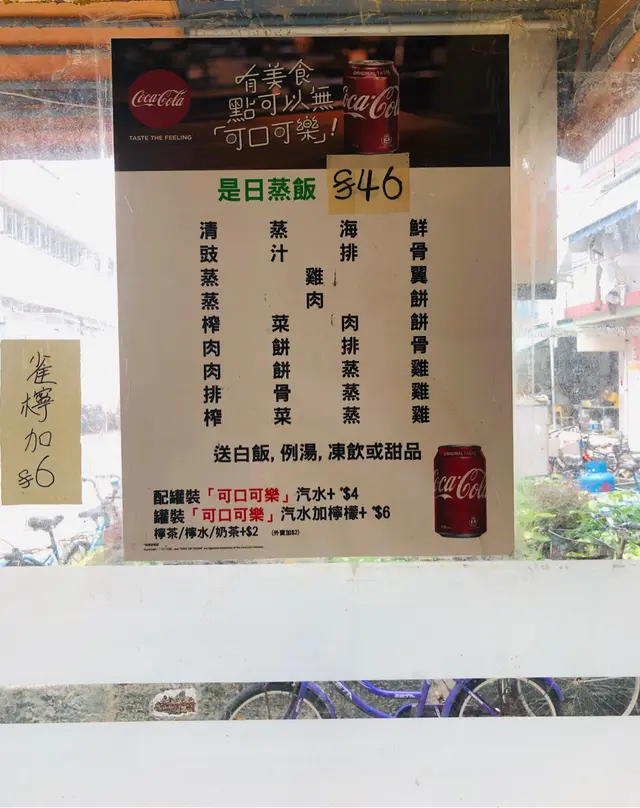 Coca-Cola
TASTE THE FEELING
有美食
點可以無
「可口可樂」!
ORIGINAL TASTE
Coca-Cola
是日蒸飯 $46
清 蒸 海 鮮
豉 汁 排 骨
蒸 雞 翼
蒸 肉 餅
榨 菜 肉 餅
肉 餅 排 骨
肉 餅 蒸 雞
排 骨 蒸 雞
榨 菜 蒸 雞
送白飯, 例湯, 凍飲或甜品
配罐裝「可口可樂」汽水+ $4
罐裝「可口可樂」汽水加檸檬+ $6
檸茶/檸水/奶茶+$2 (外賣加$2)
ORIGINAL TASTE
Coca-Cola
雀
檸
加
$6